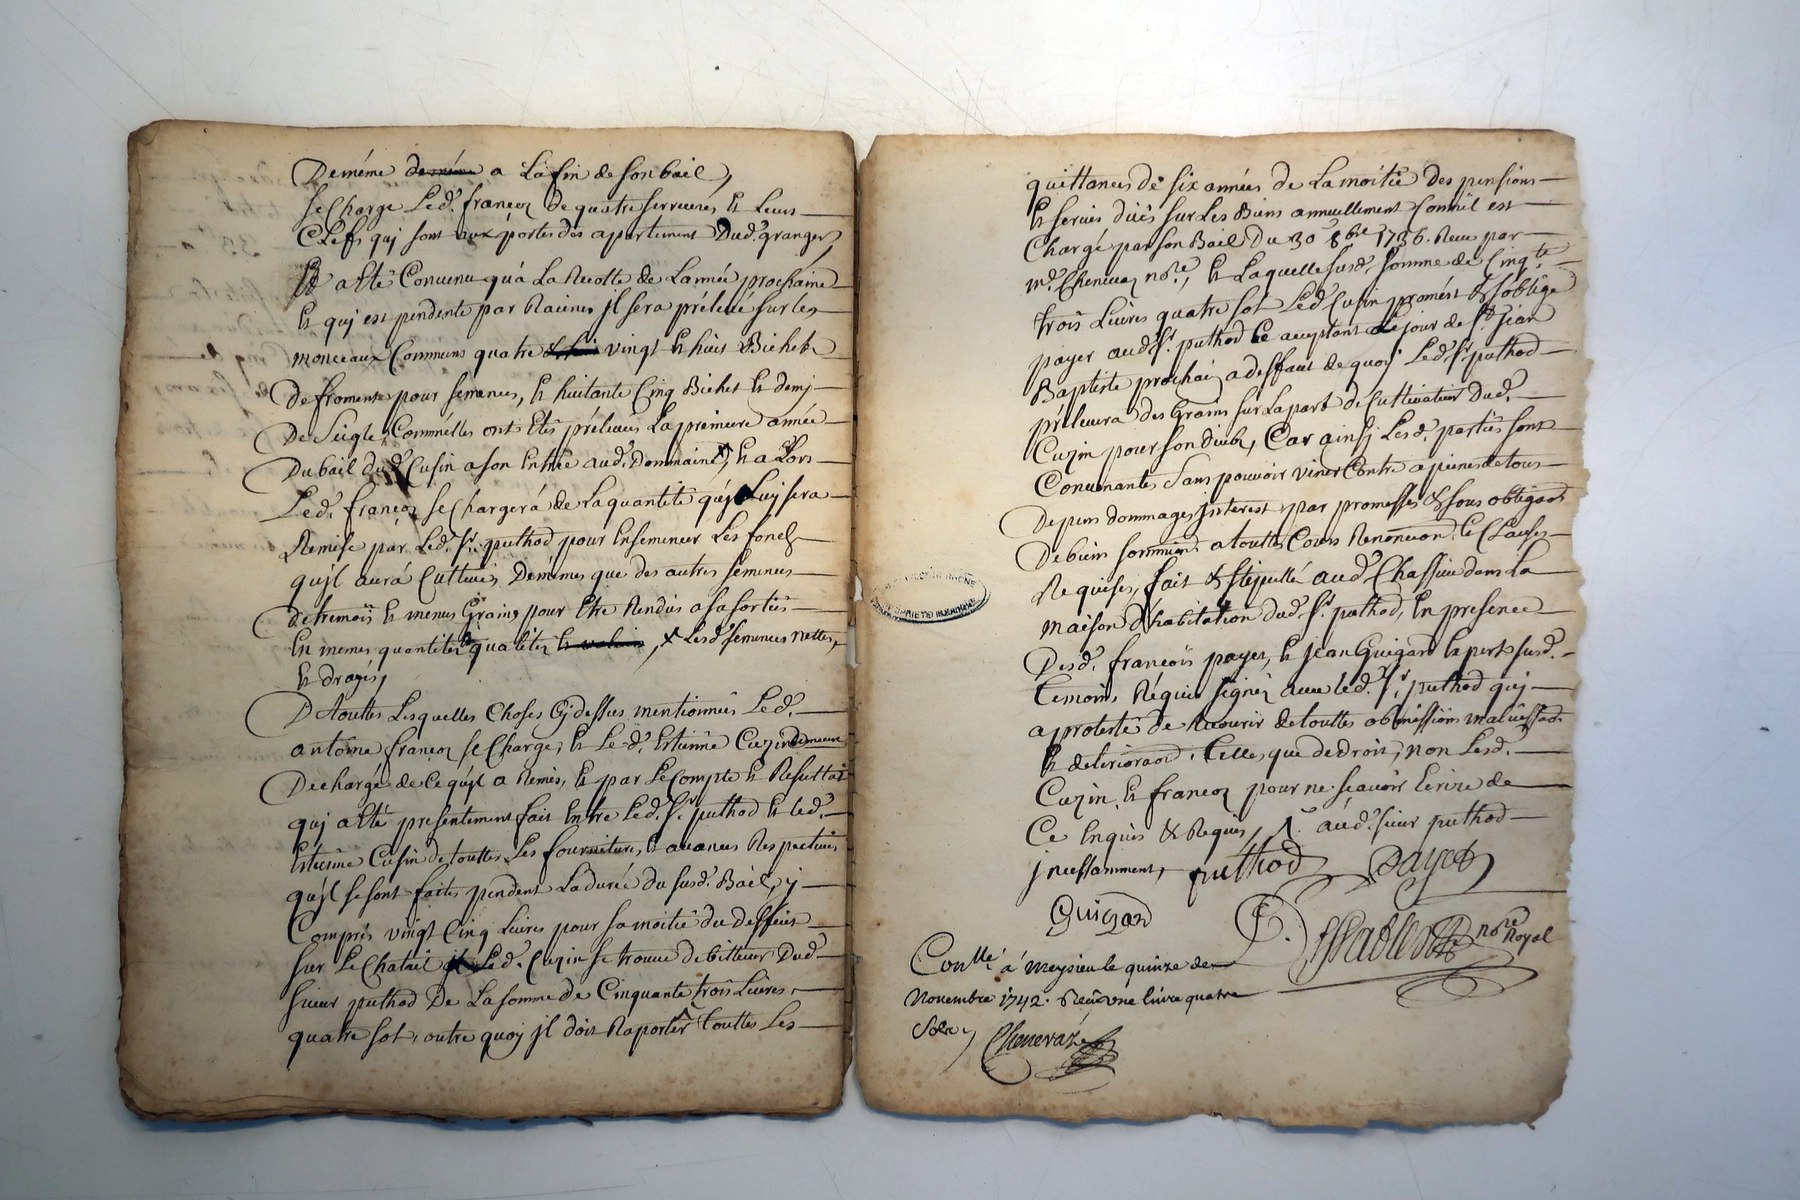 Demême demême a La fin de son bail,
se Charge Led. françon de quatre serrures et Leurs
Clefs qui sont aux portes des apartement Dud. granger,
Il a Eté Convenu qu'a La Recolte de L'année prochaine
et qui est pendente par Racines jl sera prélevé sur les
monceaux Communs quatre vingt et huit Bichets
De froment pour semences, et huitante Cinq Bichet et demj
De Seigle, Comm'elles ont Etés prélevées La première année
Du bail dud. Cusin a son Entrée aud. Dommaine, et a Lors
Led. françon se Chargerá de La quantité quj Luj sera
Remise par Led. Sr. puthod pour Ensemencer Les fonds
qu'jl aurá Cultivés, Demêmes que des autres semences
de tremois et menus Grains pour Etre Rendus a sa sortie
En memes quantités & qualités, x Lesd. semences nettes,
et dragés,
De touttes Lesquelles Choses Cj dessus mentionnées Led.
antoine françon se Charge, et Led. Estienne Cuzin demeure
Dechargé de Ce qu'jl a Remis, et par Le Compte et Resultat
quj a Eté presentement fait Entre Led. Sr. puthod et Led.
Estienne Cusin de touttes Les fournitures, et avances Respectives
qu'jl se sont faites pendent La durée du susd. Bail, y
Compris vingt Cinq Livres pour sa moitié du deffécit
sur Le Chatail Led. Cuzin se trouve debitteur Dud.
sieur puthod De La somme de Cinquante trois Livres
quatre sol, outre quoy jl doit Raporter touttes Les
quittances de six années de La moitié des pensions
et servis dûes sur Les Biens annuellement Comm'il est
Chargé par son Bail Du 30 8bre 1736. Reçu par
me. Chenevaz nore., et Laquelle susd. somme de Cinqte
trois Livres quatre sol Led. Cusin promést & s'oblige
payer aud. Sr. puthod Ce acceptant Le jour de St. Jean
Baptiste prochain a deffaut de quoj Led. Sr. puthod
prélevera des Grains sur La part de Cultivateur Dud.
Cuzin pour son dûb, Car ainsj Lesd. parties sont
Convenantes sans pouvoir venir Contre a peines de tous
Depens dommages Interest par promesses & sous obligaõn
De biens soummiõn. a touttes Cours Renonciaõn. et Clauses
Requises, fait & stipullé aud. Chassieu dans La
maison d'habitation dud. Sr. puthod, En presence
Desd. françois payet, et jean Guigard Experts susd.
temoins Requis signés avec led. Sr. puthod quj
a protesté de Recourir de touttes obmissions malversaõn
et deterioraõn. telles que de droit, non Lesd.
Cuzin, et françon pour ne sçavoir Ecrire de
Ce Enquis & Requis, aud. sieur puthod
jncessamment, puthod payet
Guigard
Dessables nore Royal
Conllé á meysieu le quinze de
Novembre 1742. Reçu une livre quatre
Sols, Chenevaz